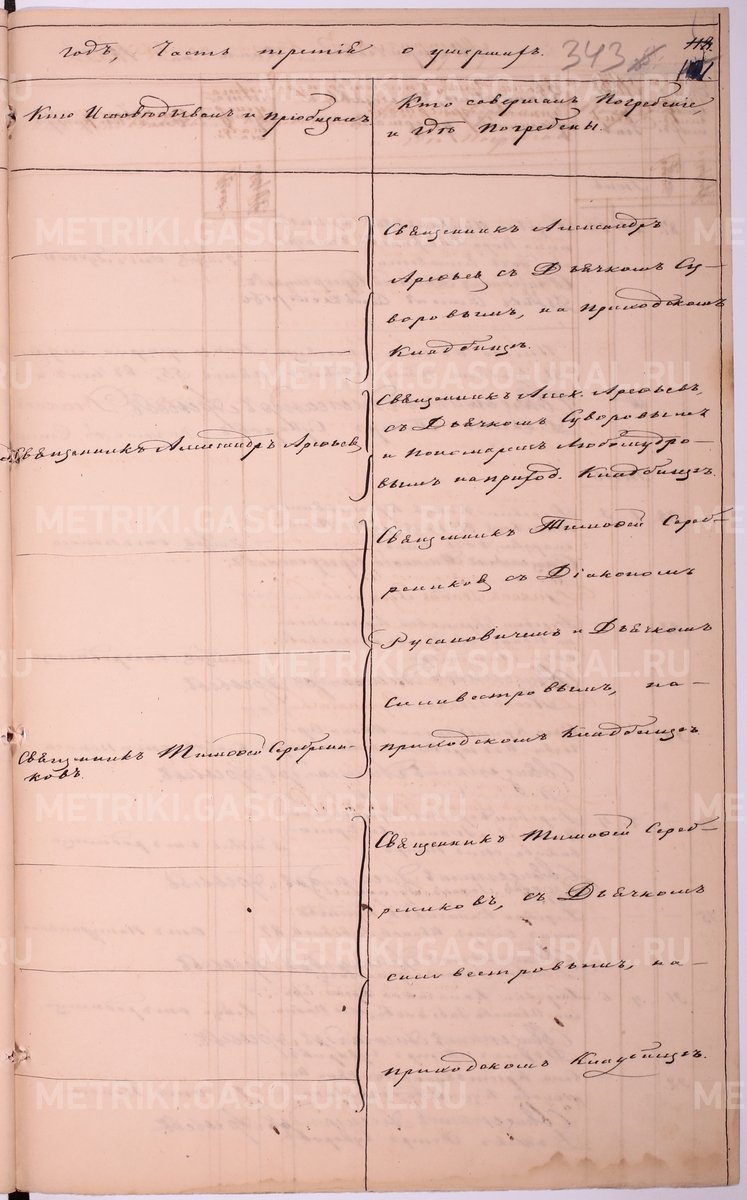 годъ, Часть третія о умершихъ. 343
Кто Исповѣдывалъ и пріобщалъ
Кто совершалъ Погребеніе,
и гдѣ Погребены.
Священникъ Александръ
Арефьевъ съ Дьячкомъ Су-
воровымъ, на приходскомъ
Кладбищѣ.
Священникъ Александръ Арефьевъ
Священникъ Алек. Арефьевъ,
съ Дьячкомъ Суворовымъ
и Пономаремъ Любомудро-
вымъ на приход. Кладбищѣ.
Священникъ Тимофей Сереб-
рениковъ съ Діакономъ
Русановичемъ и Дьячкомъ
Силивестровымъ, на
приходскомъ Кладбищѣ
Священникъ Тимофей Серебрени-
ковъ.
Священникъ Тимофей Сереб-
рениковъ, съ Дьячкомъ
Силивестровымъ, на
приходскомъ Кладбищѣ.
METRIKI.GASO-URAL.RU